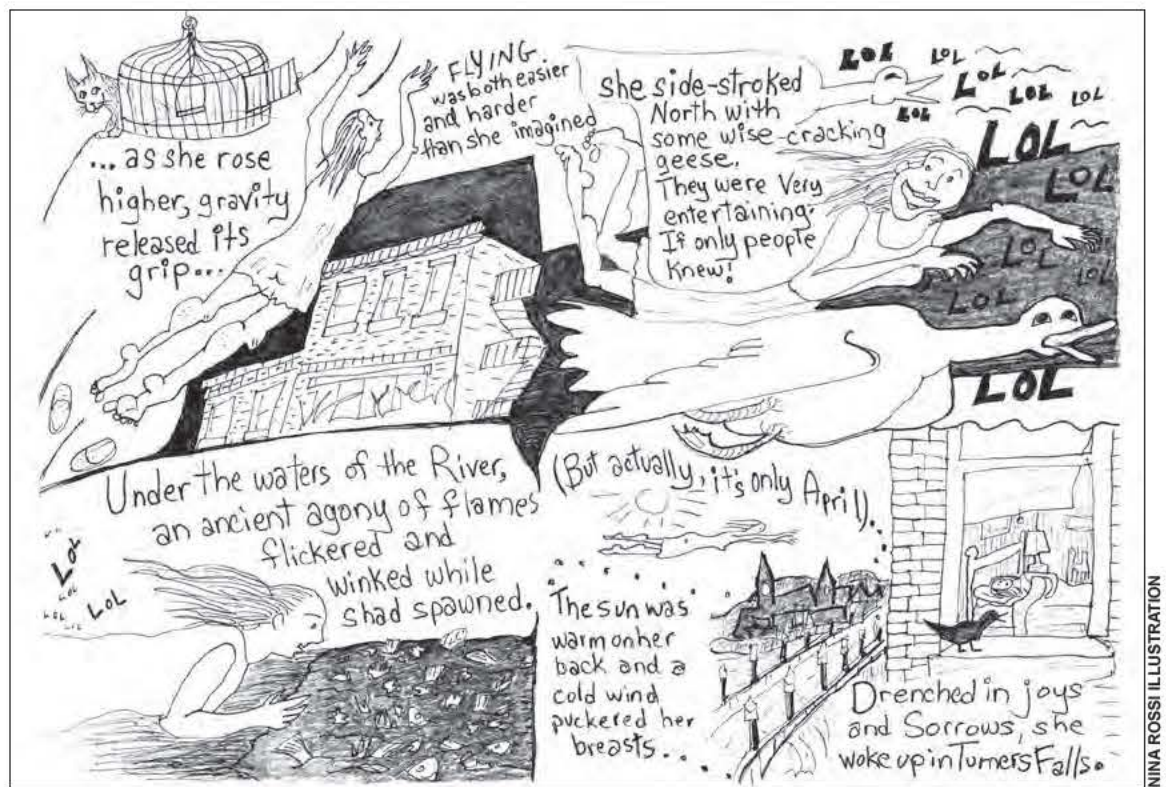 ... as she rose
higher, gravity
released its
grip...
FLYING
was both easier
and harder
than she imagined
she side-stroked
North with
some wise-cracking
geese.
They were very
entertaining.
If only people
knew!
LOL
LOL
LOL
LOL
LOL
LOL
LOL
LOL
LOL
LOL
LOL
LOL
Under the waters of the River,
an ancient agony of flames
flickered and
winked while
shad spawned.
LOL
LOL
LOL
LOL
(But actually, it's only April).
The sun was
warm on her
back and a
cold wind
puckered her
breasts...
Drenched in joys
and Sorrows, she
woke up in Turners Falls.
NINA ROSSI ILLUSTRATION